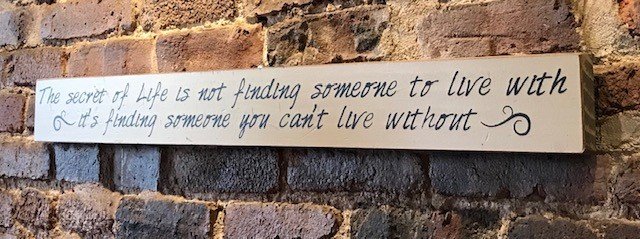 The secret of Life is not finding someone to live with
it's finding someone you can't live without